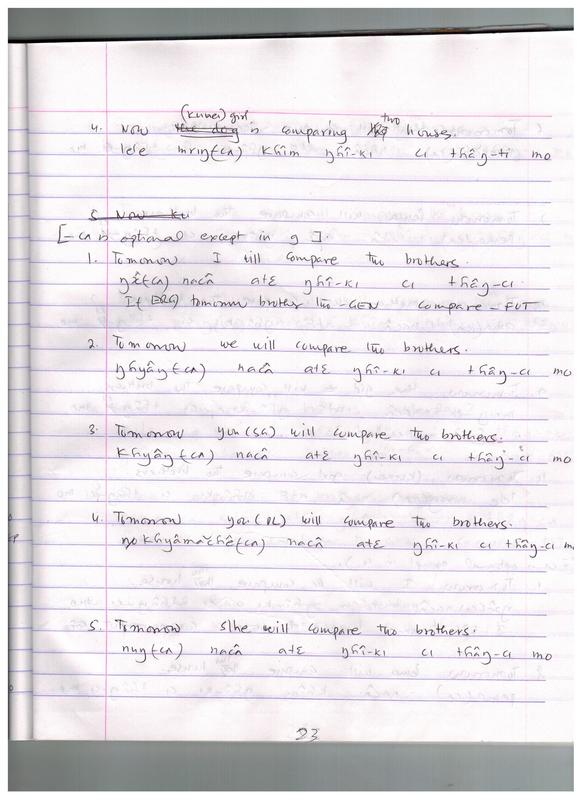 (Kunei) girl two
4. Now the dog is comparing houses.
lele mriŋ(cʌ) khîm ŋhî-kɪ cɪ thâŋ-ti mo
5. Now Ku
[-cʌ is optional except in 9].
1. Tomorrow I will compare two brothers.
ŋɛ̂(cʌ) nacâ atɛ ŋhî-kɪ cɪ thâŋ-cɪ.
ERG) tomorrow brother two-GEN compare-FUT
2. Tomorrow we will compare two brothers.
ŋhyâŋ(cʌ) nacâ atɛ ŋhî-kɪ cɪ thâŋ-cɪ mo
3. Tomorrow you(SG) will compare two brothers.
Khyâŋ(cʌ) nacâ atɛ ŋhî-kɪ cɪ thâŋ-cɪ mo
4. Tomorrow you(PL) will compare two brothers.
khyâmačhê(cʌ) nacâ atɛ ŋhî-kɪ cɪ thâŋ-cɪ m
5. Tomorrow s/he will compare two brothers.
nuŋ(cʌ) nacâ atɛ ŋhî-kɪ cɪ thâŋ-cɪ mo
23